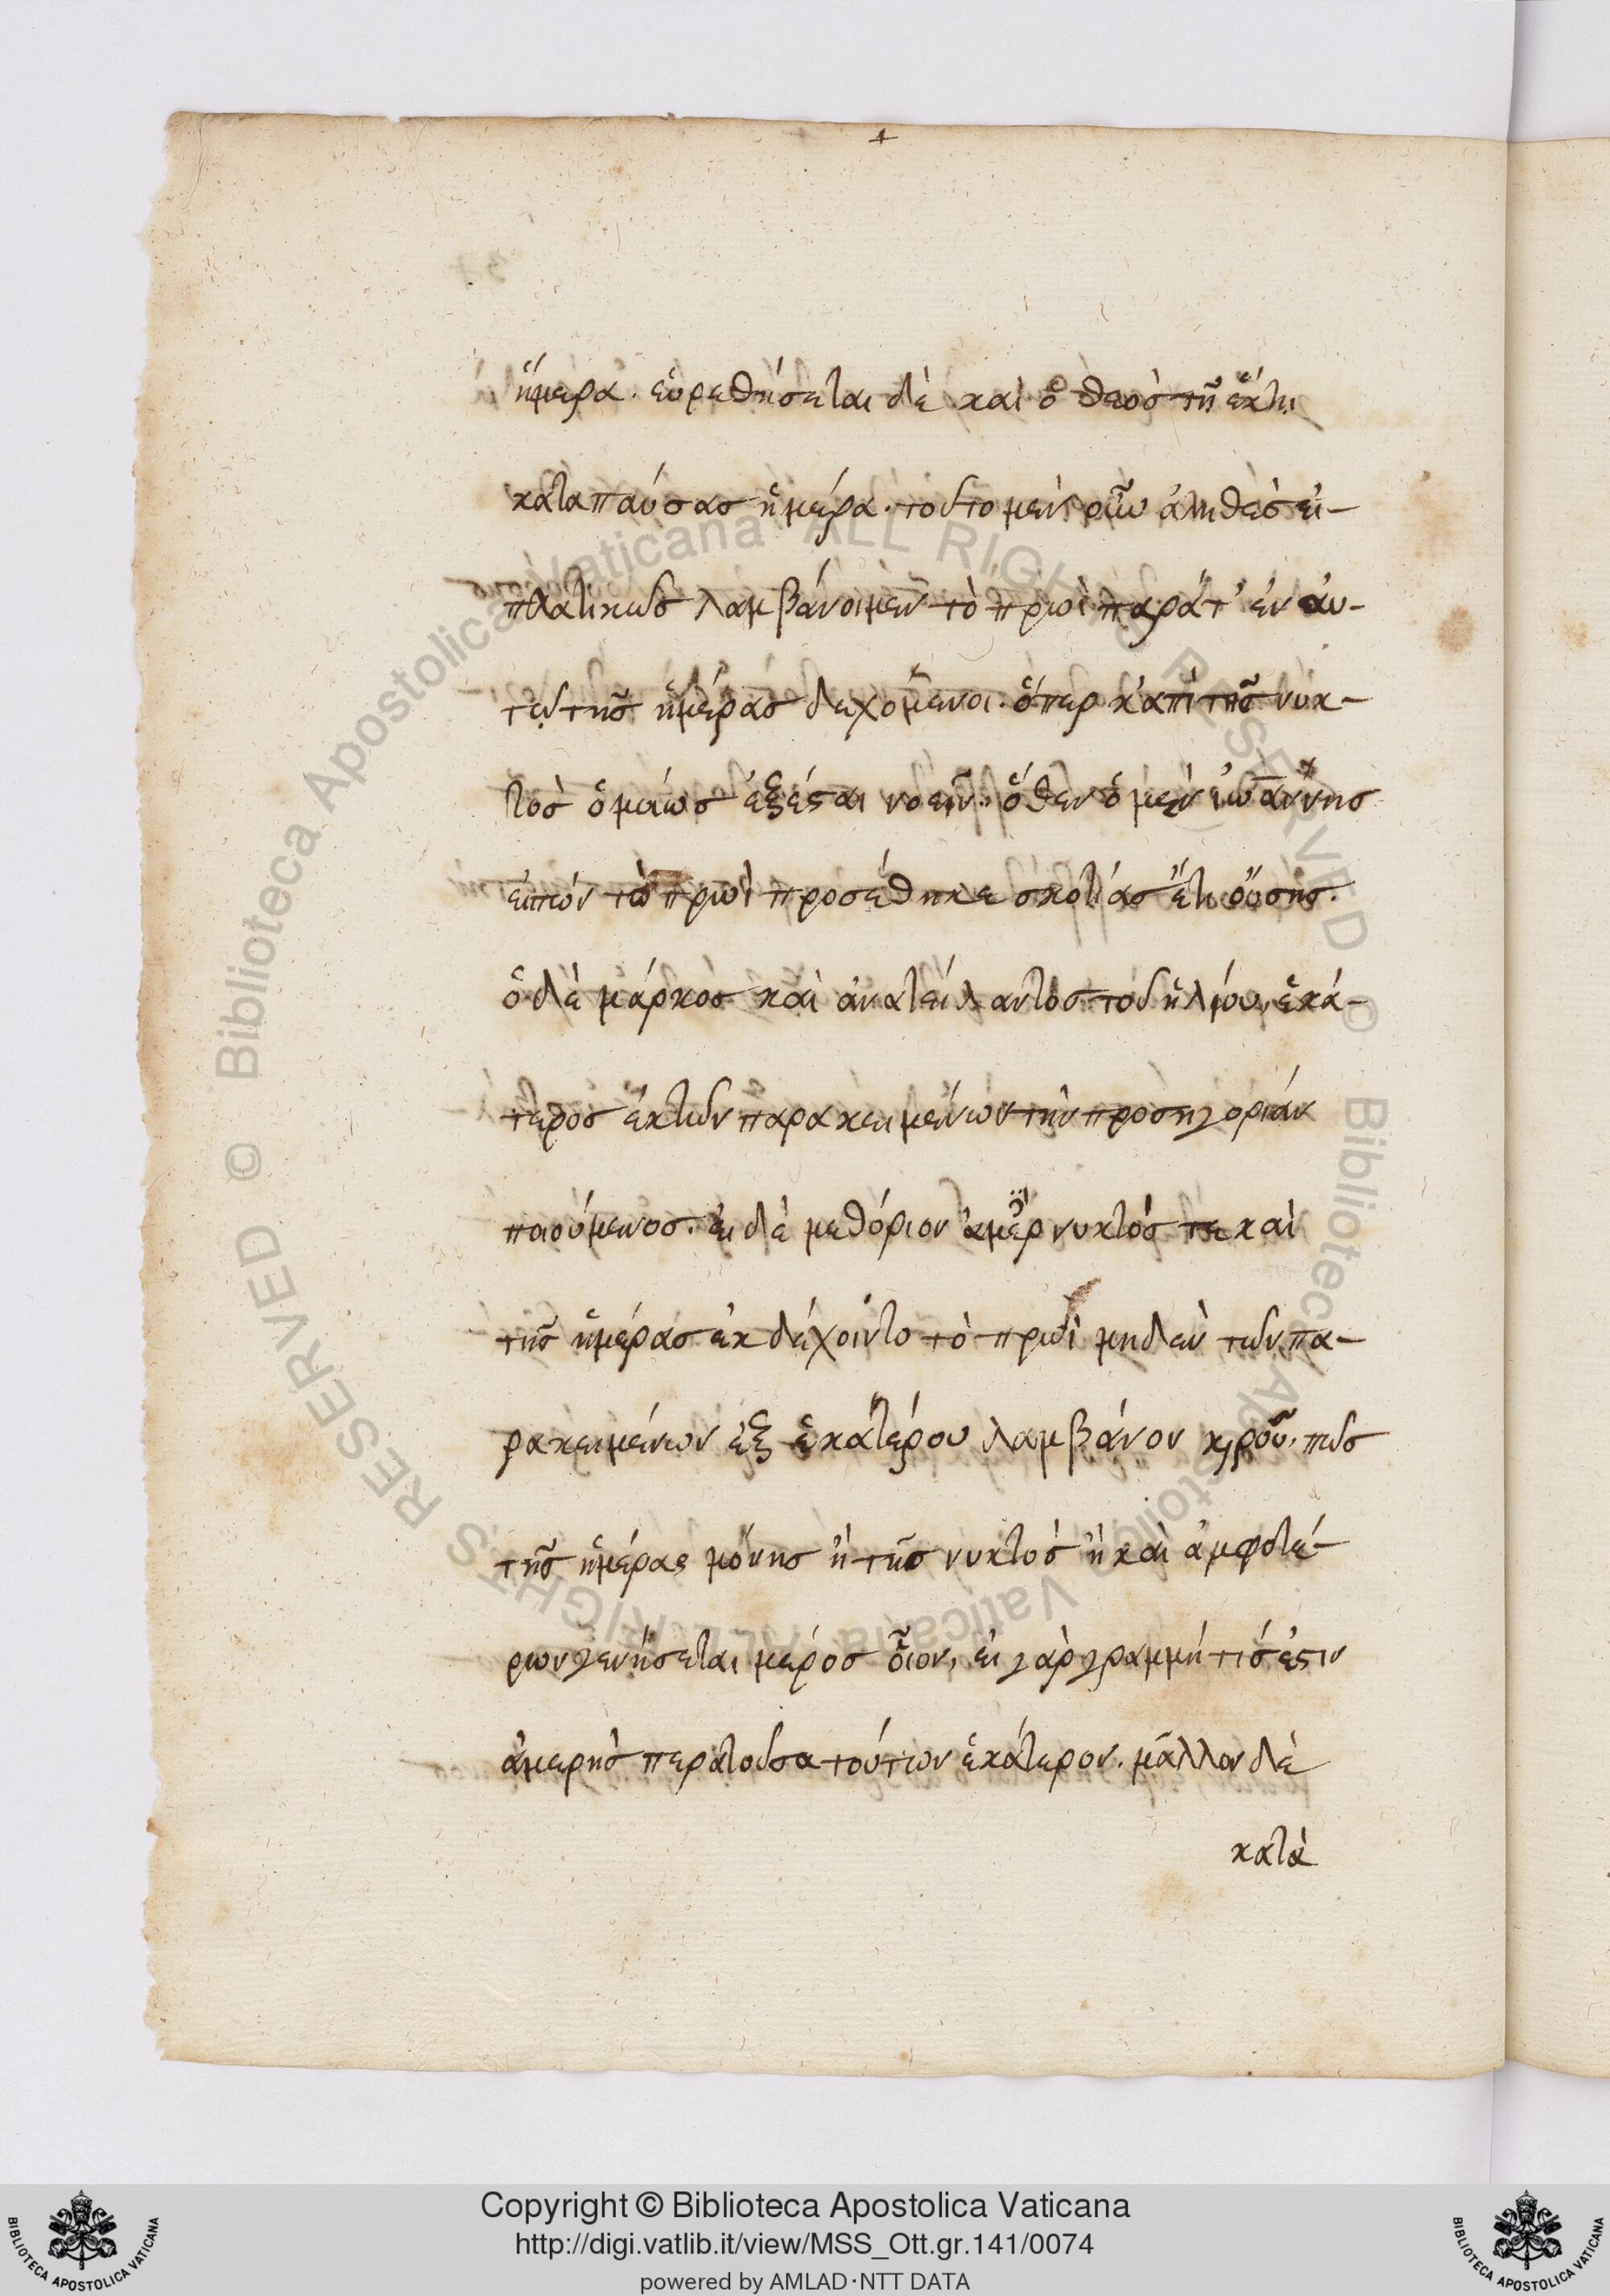 ἡμερα. εὑρεθήσεται δὲ καὶ ὁ θεὸσ τῆ ἕκτηι
καταπαύσασ ἡμέρα. τοῦτο μὲν οὖν ἀληθὲσ εἰ-
πλατικῶσ λαμβάνοιμεν τὸ πρωῒ παρὰ τ' ἐν αυ-
τῶ τῆσ ἡμέρασ δεχόμενοι. ὅπερ κἀπὶ τῆσ νυκ-
τὸσ ὁμοίωσ ἐξέσαι νοεῖν. ὅθεν ὁ μὲν ἰωάννησ
εἰπὼν τὸ πρωῒ προσέθηκε σκοτίασ ἔτι οὔσησ.
ὁ δὲ μάρκοσ καὶ ἀνατείλαντοσ τοῦ ἡλίου, ἑκά-
τεροσ ἐκ τῶν παρακειμένων τὴν προσηγορίαν
ποιούμενοσ. εἰ δὲ μεθόριον ἀμερ νυκτόσ τε καὶ
τῆσ ἡμέρασ ἐκδέχοιντο τὸ πρωῒ μηδὲν τῶν πα-
ρακειμένων ἐξ ἑκατέρου λαμβάνον, πῶσ
τῆσ ἡμέρας μόνησ ἢ τῆσ νυκτὸσ ἢ καὶ ἀμφοτέ-
ρων γενήσεται μέροσ οἷον, εἰ γὰρ γραμμή τίσ ἐστιν
ἀμερὴσ περατοῦσα τούτων ἑκάτερον. μᾶλλον δὲ
κατὰ
Copyright © Biblioteca Apostolica Vaticana
http://digi.vatlib.it/view/MSS_Ott.gr.141/0074
powered by AMLAD·NTT DATA